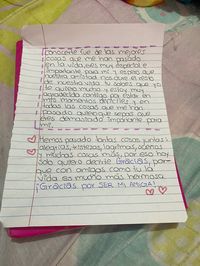 Conocerte fue de las mejores
cosas que me han pasado
en la vida, eres muy especial e
importante para mi y espero que
nuestra amistad nos que el resto
de nuestra vida, tu sabes que yo
te quiero mucho y estoy muy
agradecida contigo por estar en
mis momentos dificiles y en
todas las cosas que me han
pasado quiero que sepas que
eres demasiado importante para
mi.
Hemos pasado tantas cosas juntas
alegrias, tristezas, lagrimas,
y muchas cosas más, por eso hoy
solo quiero decir Gracias, por
que con amigas como tu la
vida es mucho más hermosa.
¡Gracias por SER MI AMIGA!